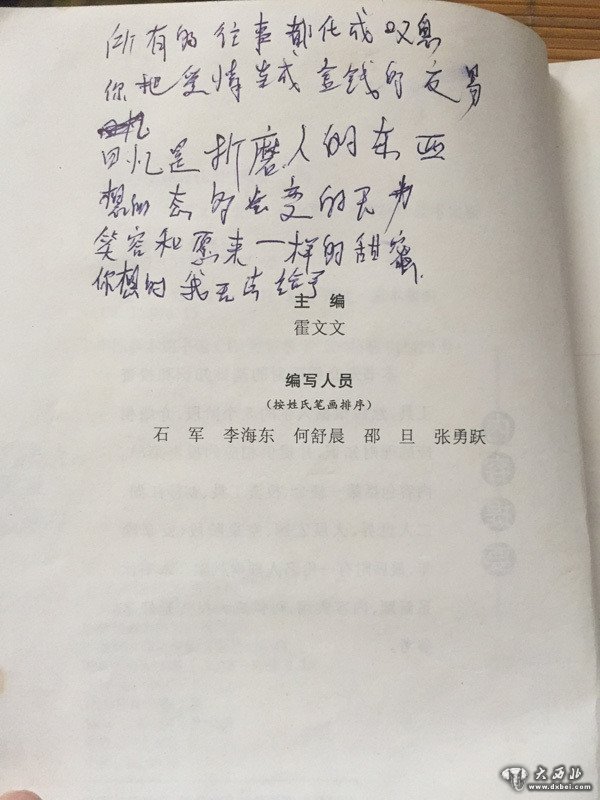 所有的往事都化成叹息
你把爱情当成金钱的交易
回忆
回忆是折磨人的东西
想的会变的无力
笑容和愿来一样的甜蜜
你想的我无法给予
主 编
霍文文
编写人员
(按姓氏笔画排序)
石 军 李海东 何舒晨 邵 旦 张勇跃
大西北
www.dxbei.com